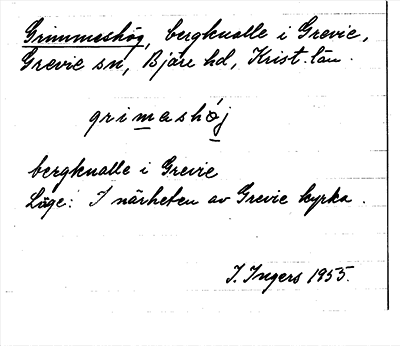 Grimmeshög, bergknalle i Grevie,
Grevie sn, Bjäre hd, Krist. län.
grimashøj
bergknalle i Grevie
Läge: I närheten av Grevie kyrka.
I. Ingers 1955.